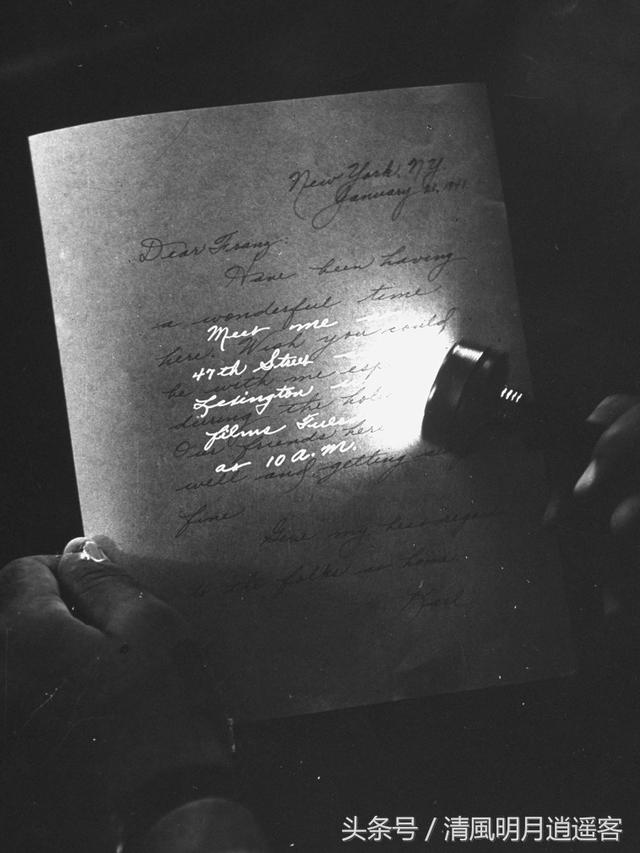 New York, N.Y.
January 21, 1941
Dear Franz:
Have been having
a wonderful time
Meet me
here. Wish you could
47th Street
be with me esp
Lexington
during the hol
films Tues
Our friends here
at 10 A.M.
well and getting
fine
Give my best regards
to the folks at home
Karl
头条号 / 清風明月逍遥客